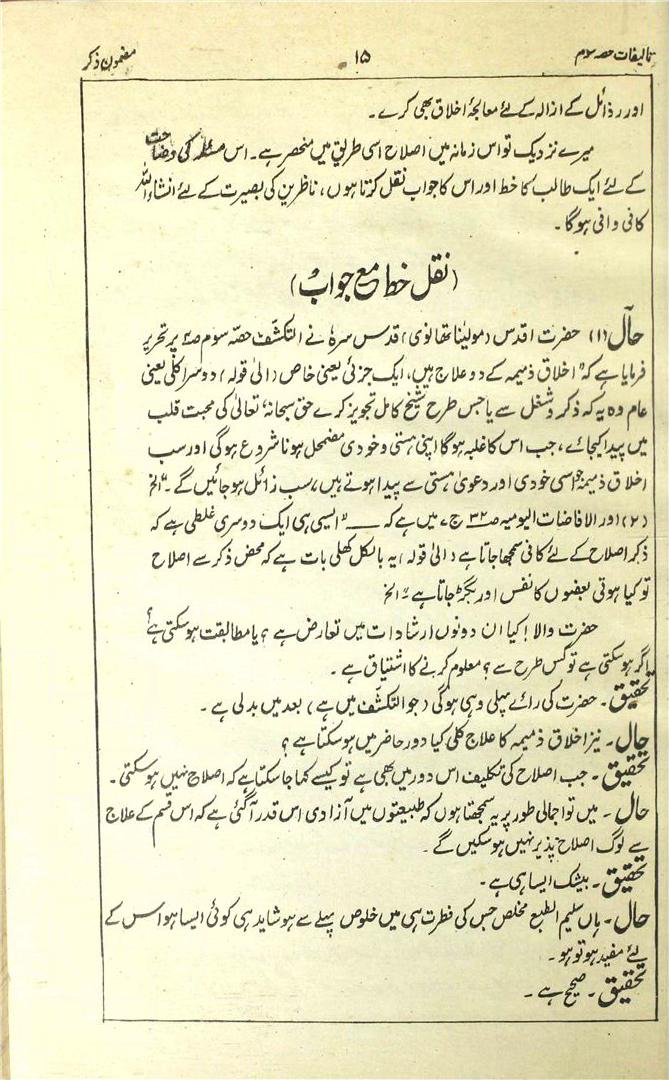 تالیفات حصہ سوم ۱۵ مضمون ذکر
اور رذائل کے ازالہ کے لئے معالجۂ اخلاق بھی کرے۔
میرے نزدیک تو اس زمانہ میں اصلاح اسی طریق میں منحصر ہے۔ اس مسئلہ کی وضاحت
کے لئے ایک طالب کا خط اور اس کا جواب نقل کرتا ہوں، ناظرین کی بصیرت کے لئے انشاءاللہ
کافی وافی ہوگا۔
(نقل خط مع جواب)
حال (۱) حضرت اقدس (مولیٰنا تھانوی) قدس سرہٗ نے التکشف حصہ سوم پر تحریر
فرمایا ہے کہ "اخلاق ذمیمہ کے دو علاج ہیں، ایک جزئی یعنی خاص (الیٰ قولہ) دوسرا کلی یعنی
عام وہ یہ کہ ذکر و شغل سے یا جس طرح شیخ کامل تجویز کرے حق سبحانہٗ تعالیٰ کی محبت قلب
میں پیدا کیجائے، جب اس کا غلبہ ہوگا اپنی ہستی و خودی مضمحل ہونا شروع ہوگی اور سب
اخلاق ذمیمہ جو اسی خودی اور دعویٰ ہستی سے پیدا ہوتے ہیں، سب زائل ہوجائیں گے۔" الخ
(۲) اور الافاضات الیومیہ ص۳۲ ج، میں ہے کہ ـــــ "ایسی ہی ایک دوسری غلطی ہے کہ
ذکر اصلاح کے لئے کافی سمجھا جاتا ہے (الیٰ قولہ) یہ بالکل کھلی بات ہے کہ محض ذکر سے اصلاح
تو کیا ہوتی بعضوں کا نفس اور بگڑ جاتا ہے" الخ
حضرت والا! کیا ان دونوں ارشادات میں تعارض ہے؟ یا مطابقت ہوسکتی ہے؟
اگر ہوسکتی ہے تو کس طرح سے؟ معلوم کرنے کا اشتیاق ہے۔
تحقیق۔ حضرت کی رائے پہلی وہی ہوگی (جو التکشف میں ہے) بعد میں بدلی ہے۔
حال۔ نیز اخلاق ذمیمہ کا علاج کلی کیا دور حاضر میں ہوسکتا ہے؟
تحقیق۔ جب اصلاح کی تکلیف اس دور میں بھی ہے تو کیسے کہا جاسکتا ہے کہ اصلاح نہیں ہوسکتی۔
حال۔ میں تو اجمالی طور پر یہ سمجھتا ہوں کہ طبیعتوں میں آزادی اس قدر آگئی ہے کہ اس قسم کے علاج
سے لوگ اصلاح پذیر نہیں ہوسکیں گے۔
تحقیق۔ بیشک ایسا ہی ہے۔
حال۔ ہاں سلیم الطبع مخلص جس کی فطرت ہی میں خلوص پہلے سے ہو شاید ہی کوئی ایسا ہو اس کے
لئے مفید ہو تو ہو۔
تحقیق۔ صحیح ہے۔